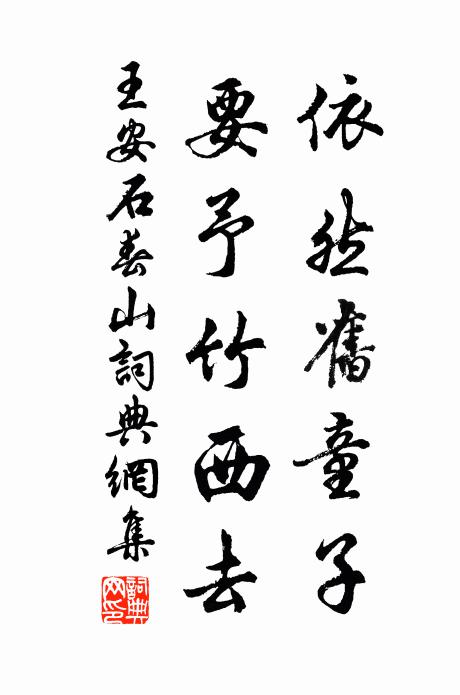 依然舊童子
要予竹西去
王安石春山詞典網集
詞典网印